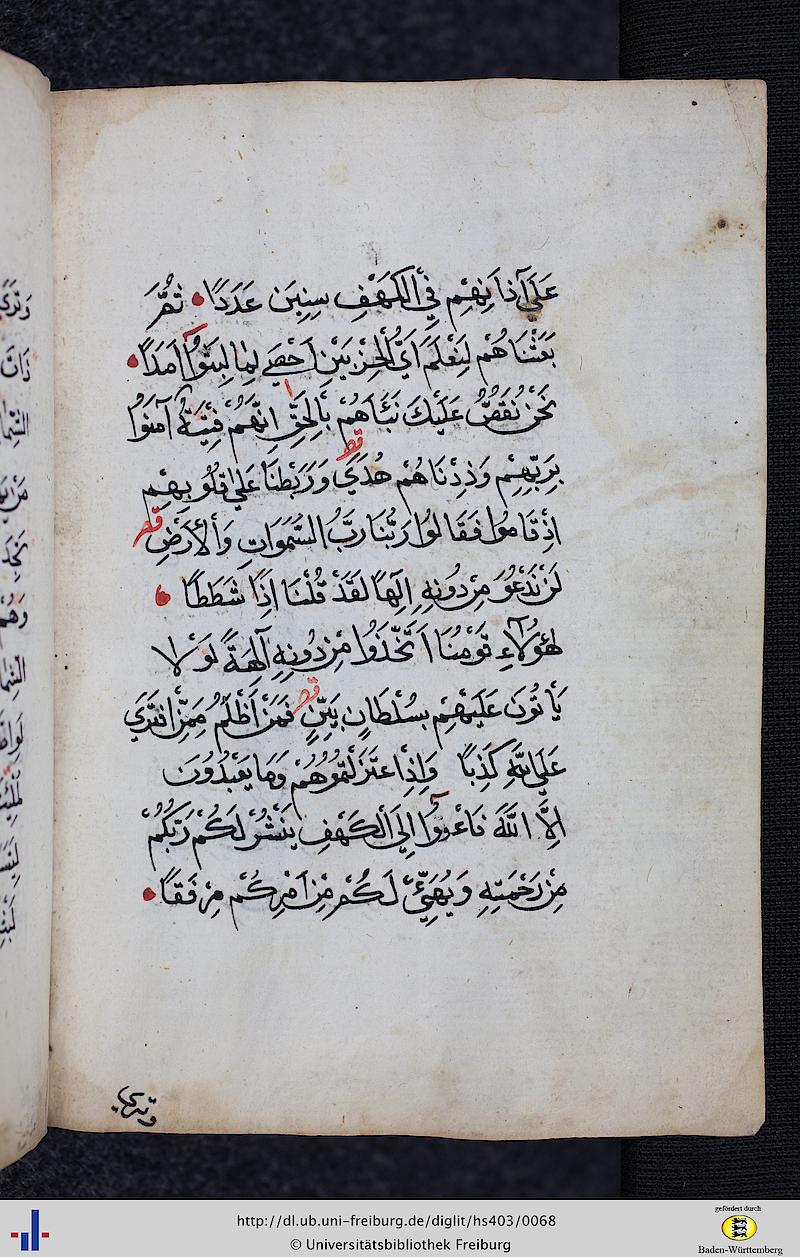 عَلَىٰ آذَانِهِمْ فِي الْكَهْفِ سِنِينَ عَدَدًا ثُمَّ
بَعَثْنَاهُمْ لِنَعْلَمَ أَيُّ الْحِزْبَيْنِ أَحْصَىٰ لِمَا لَبِثُوٓا أَمَدًا
نَحْنُ نَقُصُّ عَلَيْكَ نَبَأَهُمْ بِالْحَقِّ إِنَّهُمْ فِتْيَةٌ آمَنُوا
بِرَبِّهِمْ وَزِدْنَاهُمْ هُدًى قط وَرَبَطْنَا عَلَىٰ قُلُوبِهِمْ
إِذْ قَامُوا فَقَالُوا رَبُّنَا رَبُّ السَّمَوَاتِ وَالْأَرْضِ قط
لَنْ نَدْعُوَ مِنْ دُونِهِ إِلَهًا لَقَدْ قُلْنَا إِذًا شَطَطًا
هَؤُلَاءِ قَوْمُنَا اتَّخَذُوا مِنْ دُونِهِ آلِهَةً لَوْلَا
يَأْتُونَ عَلَيْهِمْ بِسُلْطَانٍ بَيِّنٍ قط فَمَنْ أَظْلَمُ مِمَّنِ افْتَرَى
عَلَى اللَّهِ كَذِبًا وَإِذِ اعْتَزَلْتُمُوهُمْ وَمَا يَعْبُدُونَ
إِلَّا اللَّهَ فَأْوُوٓا إِلَى الْكَهْفِ يَنْشُرْ لَكُمْ رَبُّكُمْ
مِنْ رَحْمَتِهِ وَيُهَيِّئْ لَكُمْ مِنْ أَمْرِكُمْ مِرْفَقًا
وترى
http://dl.ub.uni-freiburg.de/diglit/hs403/0068
© Universitätsbibliothek Freiburg
gefördert durch
Baden-Württemberg